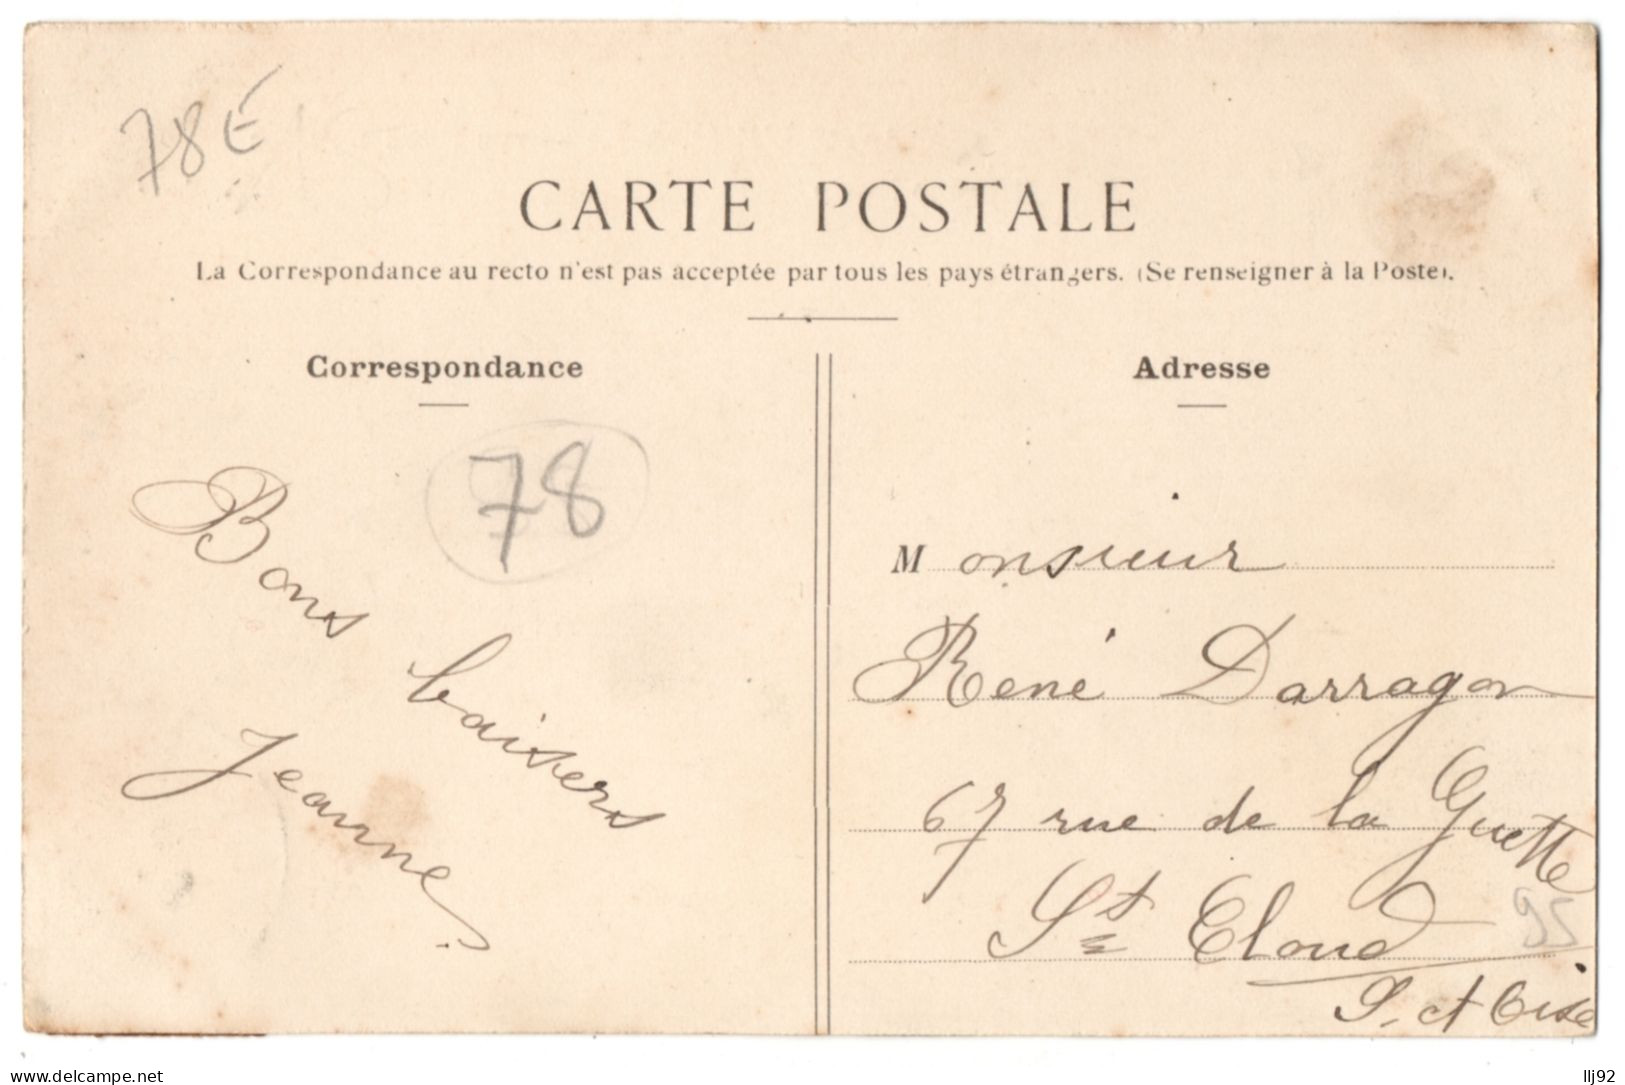 78 É
CARTE POSTALE
La Correspondance au recto n'est pas acceptée par tous les pays étrangers. (Se renseigner à la Poste).
Correspondance
78
Bons baisers
Jeanne
Adresse
Monsieur
René Darragon
67 rue de la Guette
St Cloud
95
S. et Oise
www.delcampe.net
llj92